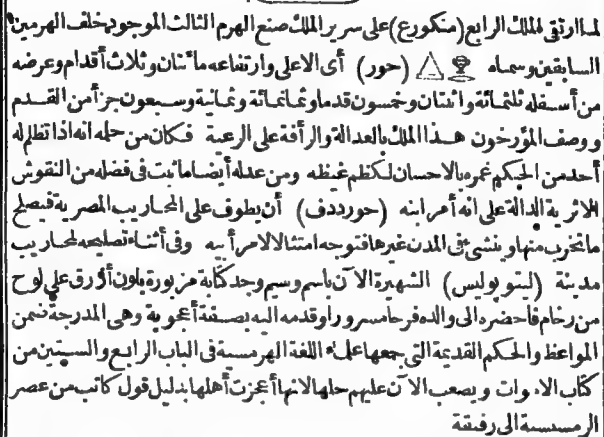 لما ارتقى الملك الرابع (منكورع) على سرير الملك صنع الهرم الثالث الموجود خلف الهرمين
السابقين وسماه (حور) أى الاعلى وارتفاعه مائتان وثلاث أقدام وعرضه
من أسفله ثلثمائة واثنتان وخمسون قدما وثمانمائة وثمانية وسبعون جزأ من القدم
ووصف المؤرخون هذا الملك بالعدالة والرأفة على الرعية فكان من حلمه انه اذا تظلم له
أحد من الحكم غمره بالاحسان لكظم غيظه ومن عدله أيضا ما ثبت فى فضله من النقوش
الاثرية الدالة على انه أمر ابنه (حورددف) أن يطوف على المحاريب المصرية فيصلح
ما تخرب منها وينشئ فى المدن غيرها فتوجه امتثالا لامر أبيه وفى أثناء تصليحه لمحاريب
مدينة (ليتوپوليس) الشهيرة الآن باسم وسيم وجد كتابة مزبورة بلون أزرق على لوح
من رخام فاحضره الى والده فرحا مسرورا وقدمه اليه بصفة أعجوبة وهى المدرجة ضمن
المواعظ والحكم القديمة التى جمعها علماء اللغة الهرمسية فى الباب الرابع والستين من
كتاب الاموات ويصعب الآن عليهم حلها لانها أعجزت أهلها بدليل قول كاتب من عصر
الرمسيسية الى رفيقة